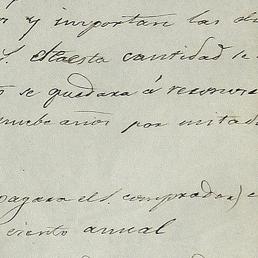 y importan las di
esta cantidad se
se quedara á recono
años por mitad
pagara el S. comprador) e
ciento anual